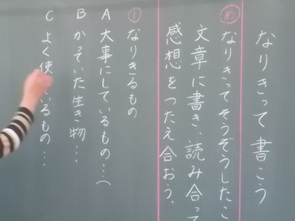 なりきって書こう
め なりきってそうぞうしたこ
文章に書き、読み合って
感想をつたえ合おう。
① なりきるもの
A 大事にしているもの…(
B かっていた生き物…
C よく使っているもの…